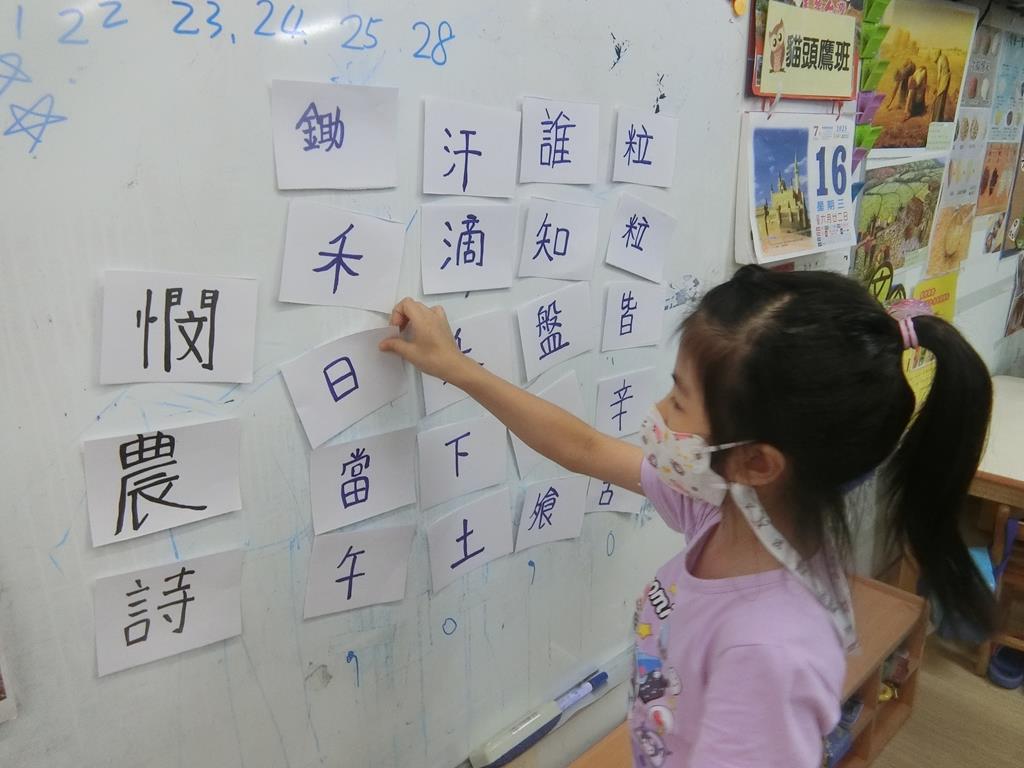 1 22 23. 24. 25 28
憫農詩
鋤禾日當午,
汗滴下土。
誰知盤飧,
粒粒皆辛。
貓頭鷹班
7 2025
16
星期三
六月廿二日